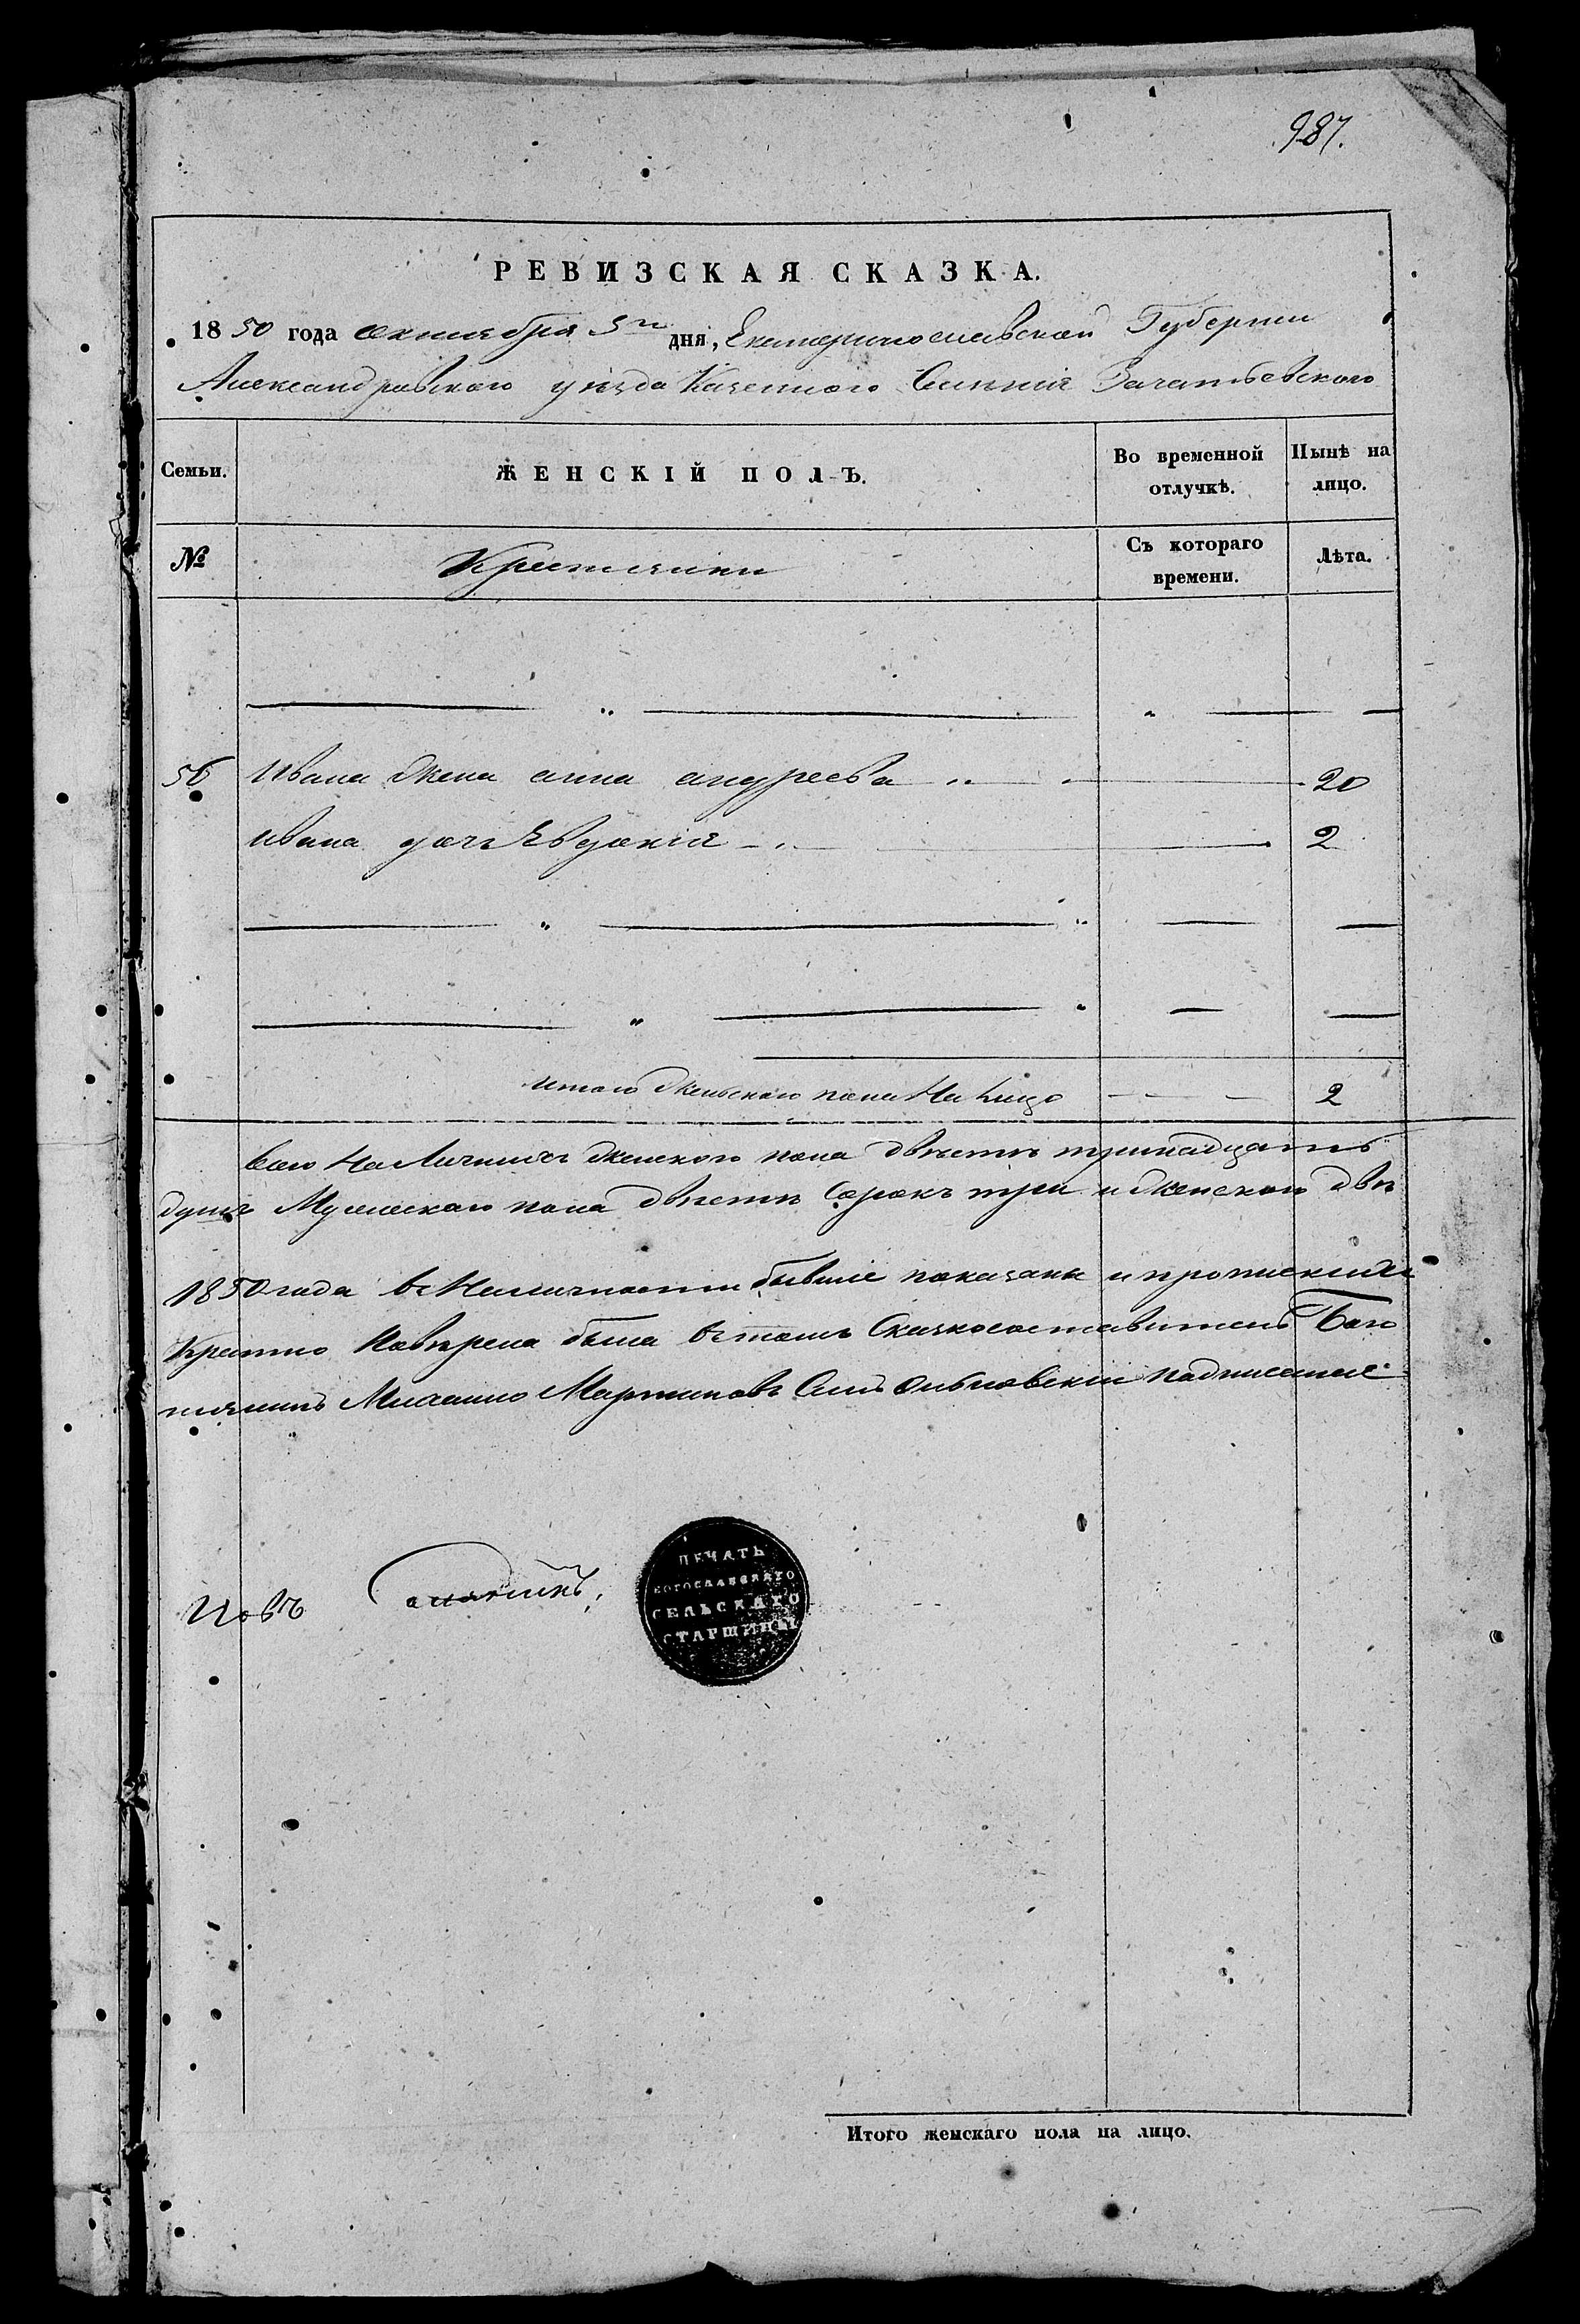 987.
РЕВИЗСКАЯ СКАЗКА.
1850 года октября 5го дня, Екатеринославской Губернии
Александровского уезда Казенного Селения Зачатьевского
Семьи.
ЖЕНСКІЙ ПОЛЪ.
Во временной отлучкѣ.
Нынѣ на лицо.
№
Крестьянки
Съ котораго времени.
Лѣта.
56 Ивана жена анна андреева 20
Ивана дочь Евдокія 2
итого женского пола На лицо 2
всего На Личных женского пола двести тринадцать
душъ Мужеского пола двести Сорокъ три и женского две
1850 года в Наличности бывшие показаны и
поверена была в томъ Сказкосоставитель Бого
Михайло Мартиновъ Сынъ подписался
новъ
ПЕЧАТЬ
БОГОСЛАВСКАГО
СЕЛЬСКАГО
СТАРШИНЫ
Итого женскаго пола на лицо.